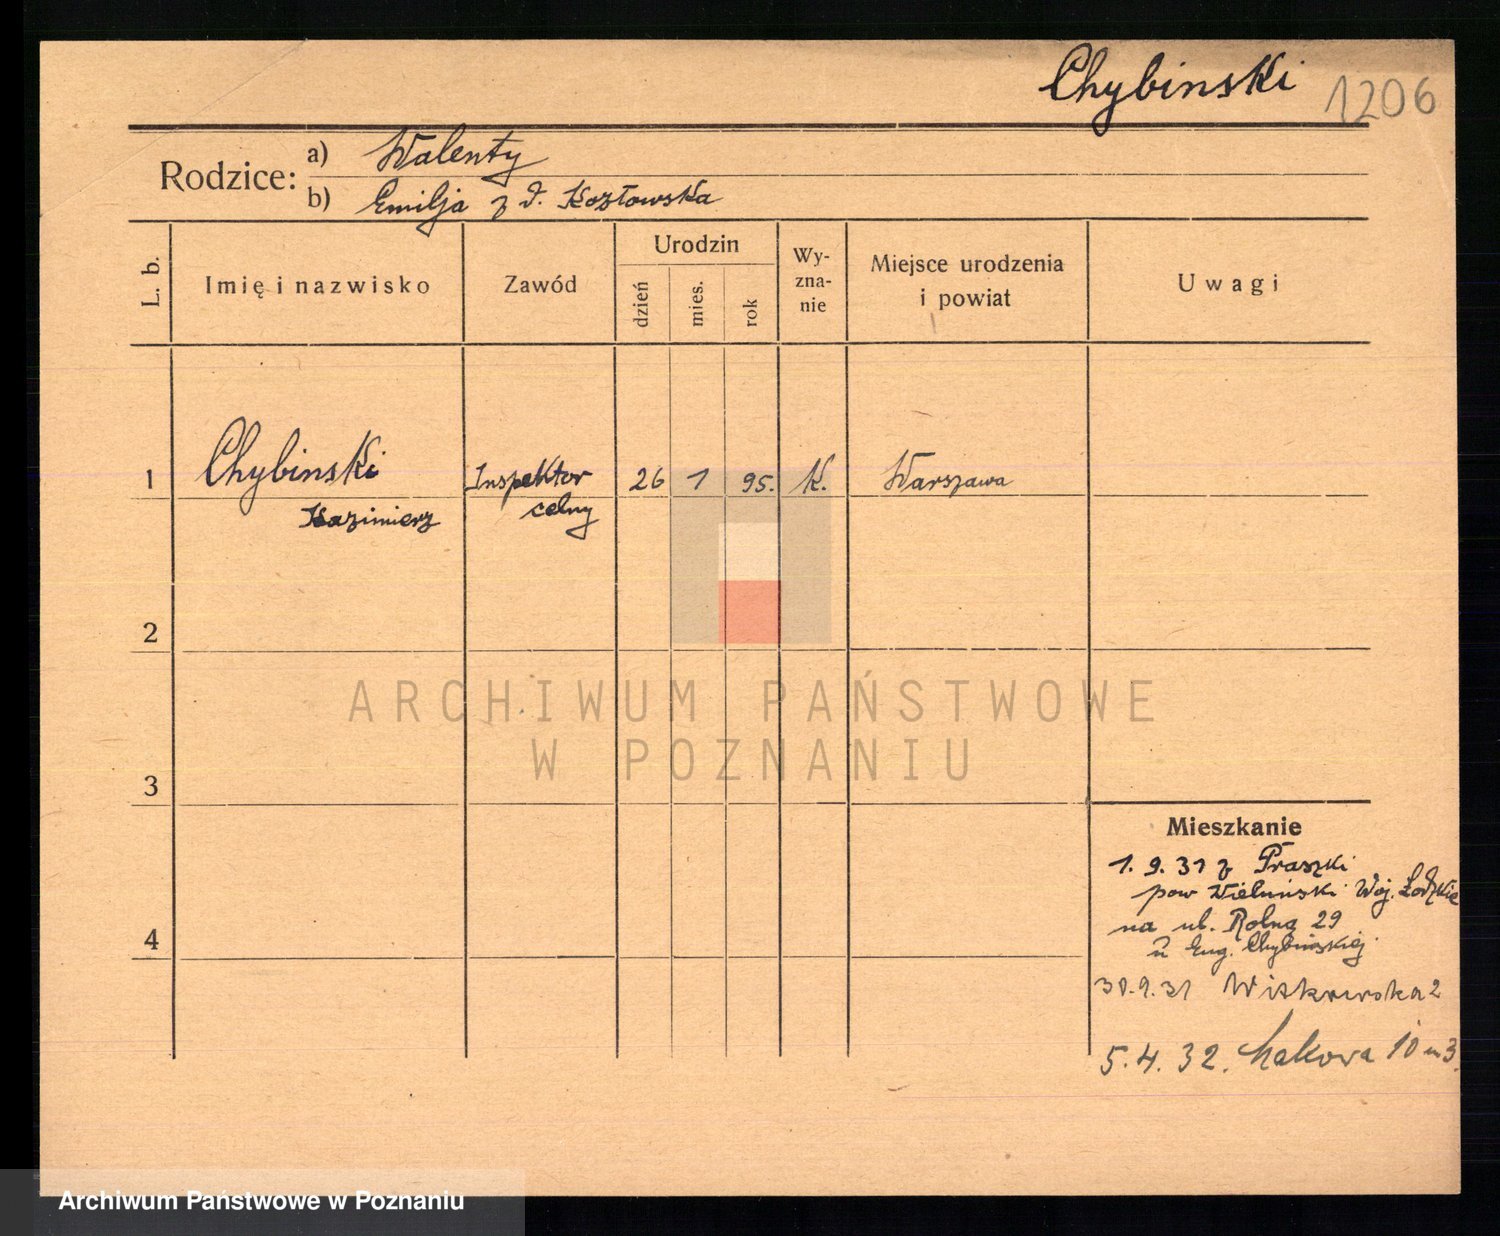 Chybinski 1206
Rodzice: a) Walenty
b) Emilja z d. Kozłowska
L. b.
Imię i nazwisko
Zawód
Urodzin
dzień
mies.
rok
Wy-
zna-
nie
Miejsce urodzenia
i powiat
Uwagi
1 Chybinski Inspektor 26 1 95. K. Warszawa
Kazimierz celny
2
3
4
ARCHIWUM PAŃSTWOWE
W POZNANIU
Mieszkanie
1. 9. 31 z Praszki
pow Wieluński Woj. Łodzkie
na ul. Rolną 29
u Eug. Chybinskiej
30.9.31
5.4.32. Łąkowa 10 m 3.
Archiwum Państwowe w Poznaniu